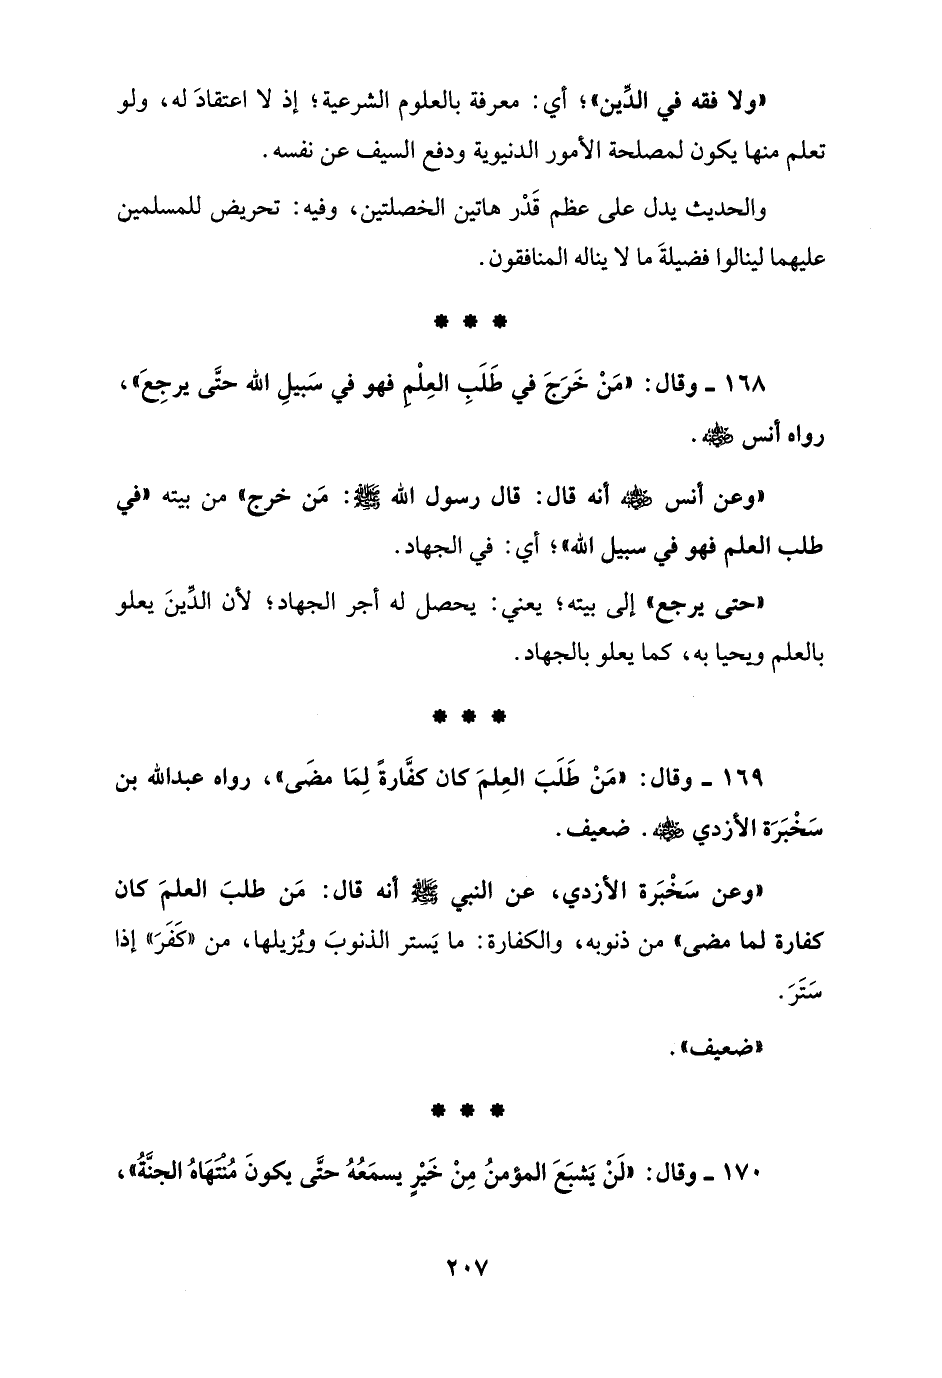 «ولا فقه في الدِّين»؛ أي: معرفة بالعلوم الشرعية؛ إذ لا اعتقادَ له، ولو
تعلم منها يكون لمصلحة الأمور الدنيوية ودفع السيف عن نفسه.
والحديث يدل على عظم قَدْر هاتين الخصلتين، وفيه: تحريض للمسلمين
عليهما لينالوا فضيلةَ ما لا يناله المنافقون.
* * *
١٦٨ ـ وقال: «مَنْ خَرَجَ في طَلَبِ العِلْمِ فهو في سَبيلِ الله حتَّى يرجِعَ»،
رواه أنس رضي الله عنه.
«وعن أنس رضي الله عنه أنه قال: قال رسول الله ﷺ: مَن خرج» من بيته «في
طلب العلم فهو في سبيل الله»؛ أي: في الجهاد.
«حتى يرجع» إلى بيته؛ يعني: يحصل له أجر الجهاد؛ لأن الدِّينَ يعلو
بالعلم ويحيا به، كما يعلو بالجهاد.
* * *
١٦٩ ـ وقال: «مَنْ طَلَبَ العِلمَ كان كفَّارةً لِمَا مضَى»، رواه عبدالله بن
سَخْبَرَة الأزدي رضي الله عنه. ضعيف.
«وعن سَخْبَرة الأزدي، عن النبي ﷺ أنه قال: مَن طلبَ العلمَ كان
كفارة لما مضى» من ذنوبه، والكفارة: ما يَستر الذنوبَ ويُزيلها، من «كَفَرَ» إذا
سَتَرَ.
«ضعيف».
* * *
١٧٠ ـ وقال: «لَنْ يَشبَعَ المؤمنُ مِنْ خَيْرٍ يسمَعُهُ حتَّى يكونَ مُنْتَهَاهُ الجنَّةُ»،
٢٠٧